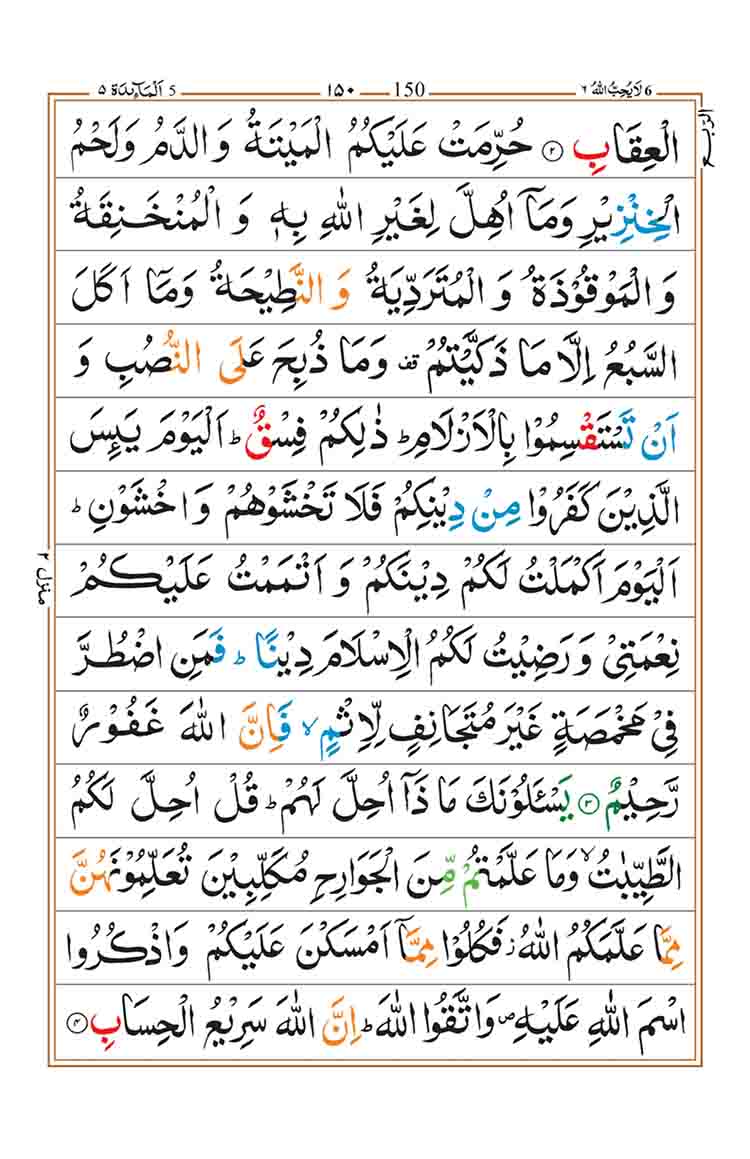 6 لَا يُحِبُّ اللّٰهُ ٦ — 150 — ١٥٠ — 5 اَلْمَآئِدَة ٥
الرّبع
الْعِقَابِ ۝٢ حُرِّمَتْ عَلَيْكُمُ الْمَيْتَةُ وَالدَّمُ وَلَحْمُ
الْخِنْزِيْرِ وَمَاۤ اُهِلَّ لِغَيْرِ اللّٰهِ بِهٖ وَ الْمُنْخَنِقَةُ
وَ الْمَوْقُوْذَةُ وَ الْمُتَرَدِّيَةُ وَ النَّطِيْحَةُ وَمَاۤ اَكَلَ
السَّبُعُ اِلَّا مَا ذَكَّيْتُمْ قف وَمَا ذُبِحَ عَلَى النُّصُبِ وَ
اَنْ تَسْتَقْسِمُوْا بِالْاَزْلَامِ ؕ ذٰلِكُمْ فِسْقٌ ؕ اَلْيَوْمَ يَئِسَ
الَّذِيْنَ كَفَرُوْا مِنْ دِيْنِكُمْ فَلَا تَخْشَوْهُمْ وَاخْشَوْنِ ؕ
اَلْيَوْمَ اَكْمَلْتُ لَكُمْ دِيْنَكُمْ وَ اَتْمَمْتُ عَلَيْكُمْ
منزل ٢
نِعْمَتِيْ وَ رَضِيْتُ لَكُمُ الْاِسْلَامَ دِيْنًا ؕ فَمَنِ اضْطُرَّ
فِيْ مَخْمَصَةٍ غَيْرَ مُتَجَانِفٍ لِّاِثْمٍ ۙ فَاِنَّ اللّٰهَ غَفُوْرٌ
رَّحِيْمٌ ۝٣ يَسْـَٔلُوْنَكَ مَا ذَاۤ اُحِلَّ لَهُمْ ؕ قُلْ اُحِلَّ لَكُمُ
الطَّيِّبٰتُ ۙ وَمَا عَلَّمْتُمْ مِّنَ الْجَوَارِحِ مُكَلِّبِيْنَ تُعَلِّمُوْنَهُنَّ
مِمَّا عَلَّمَكُمُ اللّٰهُ ز فَكُلُوْا مِمَّاۤ اَمْسَكْنَ عَلَيْكُمْ وَاذْكُرُوا
اسْمَ اللّٰهِ عَلَيْهِ ص وَاتَّقُوا اللّٰهَ ؕ اِنَّ اللّٰهَ سَرِيْعُ الْحِسَابِ ۝٤